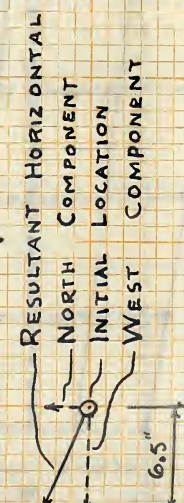 RESULTANT HORIZONTAL
NORTH COMPONENT
INITIAL LOCATION
WEST COMPONENT
6.5"